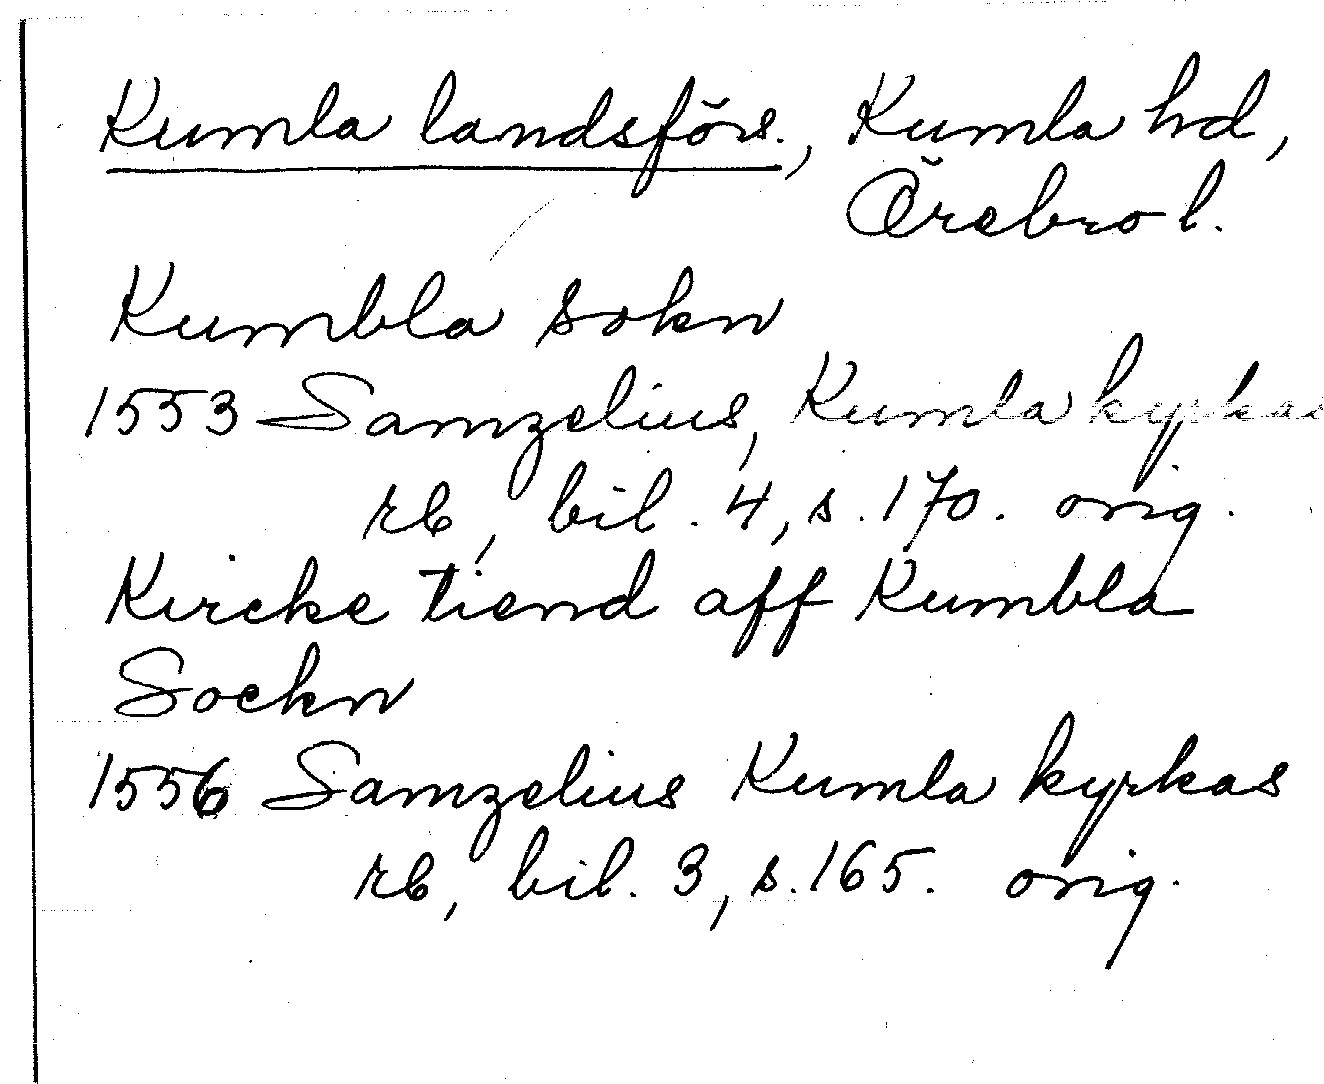 Kumla landsförs., Kumla hd,
Örebro l.
Kumbla sokn
1553 Samzelius, Kumla kyrkas
rb, bil. 4, s. 170. orig.
Kircke tiend aff Kumbla
Sockn
1556 Samzelius Kumla kyrkas
rb, bil. 3, s. 165. orig.